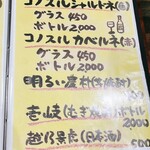 コノスルシャルドネ(白)
グラス 450
ボトル 2000
コノスル カベルネ(赤)
グラス 450
ボトル 2000
明るい農村(芋焼酎)
壱岐(むぎ焼酎)
ボトル 2000
越乃景虎(日本酒)
500